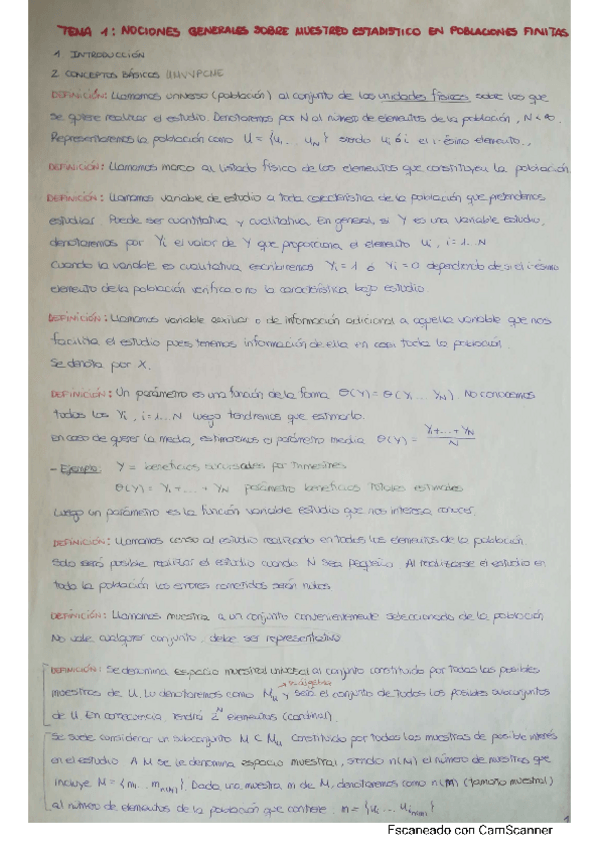 TEMA 1: NOCIONES GENERALES SOBRE MUESTREO ESTADISTICO EN POBLACIONES FINITAS
1. INTRODUCCIÓN
2. CONCEPTOS BÁSICOS
DEFINICIÓN: Llamamos universo (población) al conjunto de las unidades físicas sobre las que
se quiere realizar el estudio. Denotaremos por N al número de elementos de la población, N < ∞.
Representaremos la población como U = {u₁ ... u_N} siendo uᵢ ó i el i-ésimo elemento.
DEFINICIÓN: Llamamos marco al listado físico de los elementos que constituyen la población
DEFINICIÓN: Llamamos variable de estudio a toda característica de la población que pretendemos
estudiar. Puede ser cuantitativa y cualitativa. En general, si Y es una variable estudio,
denotaremos por Yi el valor de Y que proporciona el elemento uᵢ, i=1...N
Cuando la variable es cualitativa escribiremos Yi=1 ó Yi=0 dependiendo de si el i-ésimo
elemento de la población verifica o no la característica bajo estudio.
DEFINICIÓN: Llamamos variable auxiliar o de información adicional a aquella variable que nos
facilita el estudio pues tenemos información de ella en casi toda la población.
Se denota por X.
DEFINICIÓN: Un parámetro es una función de la forma θ(Y) = θ(Y₁ ... Y_N). No conocemos
todos los Yi, i=1...N luego tendremos que estimarlo.
En caso de querer la media, estimaremos el parámetro media θ(Y) = Y₁+...+Y_N / N
- Ejemplo: Y = beneficios por trimestres
θ(Y) = Y₁ + ... + Y_N parámetro beneficios totales
Luego un parámetro es la función variable estudio que nos interesa conocer.
DEFINICIÓN: Llamamos censo al estudio realizado en todos los elementos de la población.
Solo será posible realizar el estudio cuando N sea pequeño. Al realizarse el estudio en
toda la población los errores cometidos serán nulos.
DEFINICIÓN: Llamamos muestra a un conjunto convenientemente seleccionado de la población
No vale cualquier conjunto, debe ser representativo
DEFINICIÓN: Se denomina espacio muestral universal al conjunto constituido por todas las posibles
muestras de U. Lo denotaremos como M_u y será el conjunto de todos los posibles subconjuntos
de U. En consecuencia, tendrá 2^N elementos (cardinal).
Se suele considerar un subconjunto M ⊂ M_u constituido por todas las muestras de posible interés
en el estudio. A M se le denomina espacio muestral, siendo n(M) el número de muestras que
incluye M = {m₁ ... m_n(M)}. Dada una muestra m de M, denotaremos como n(m) (tamaño muestral)
al número de elementos de la población que contiene m = {u₁ ... u_n(m)}
1
Escaneado con CamScanner